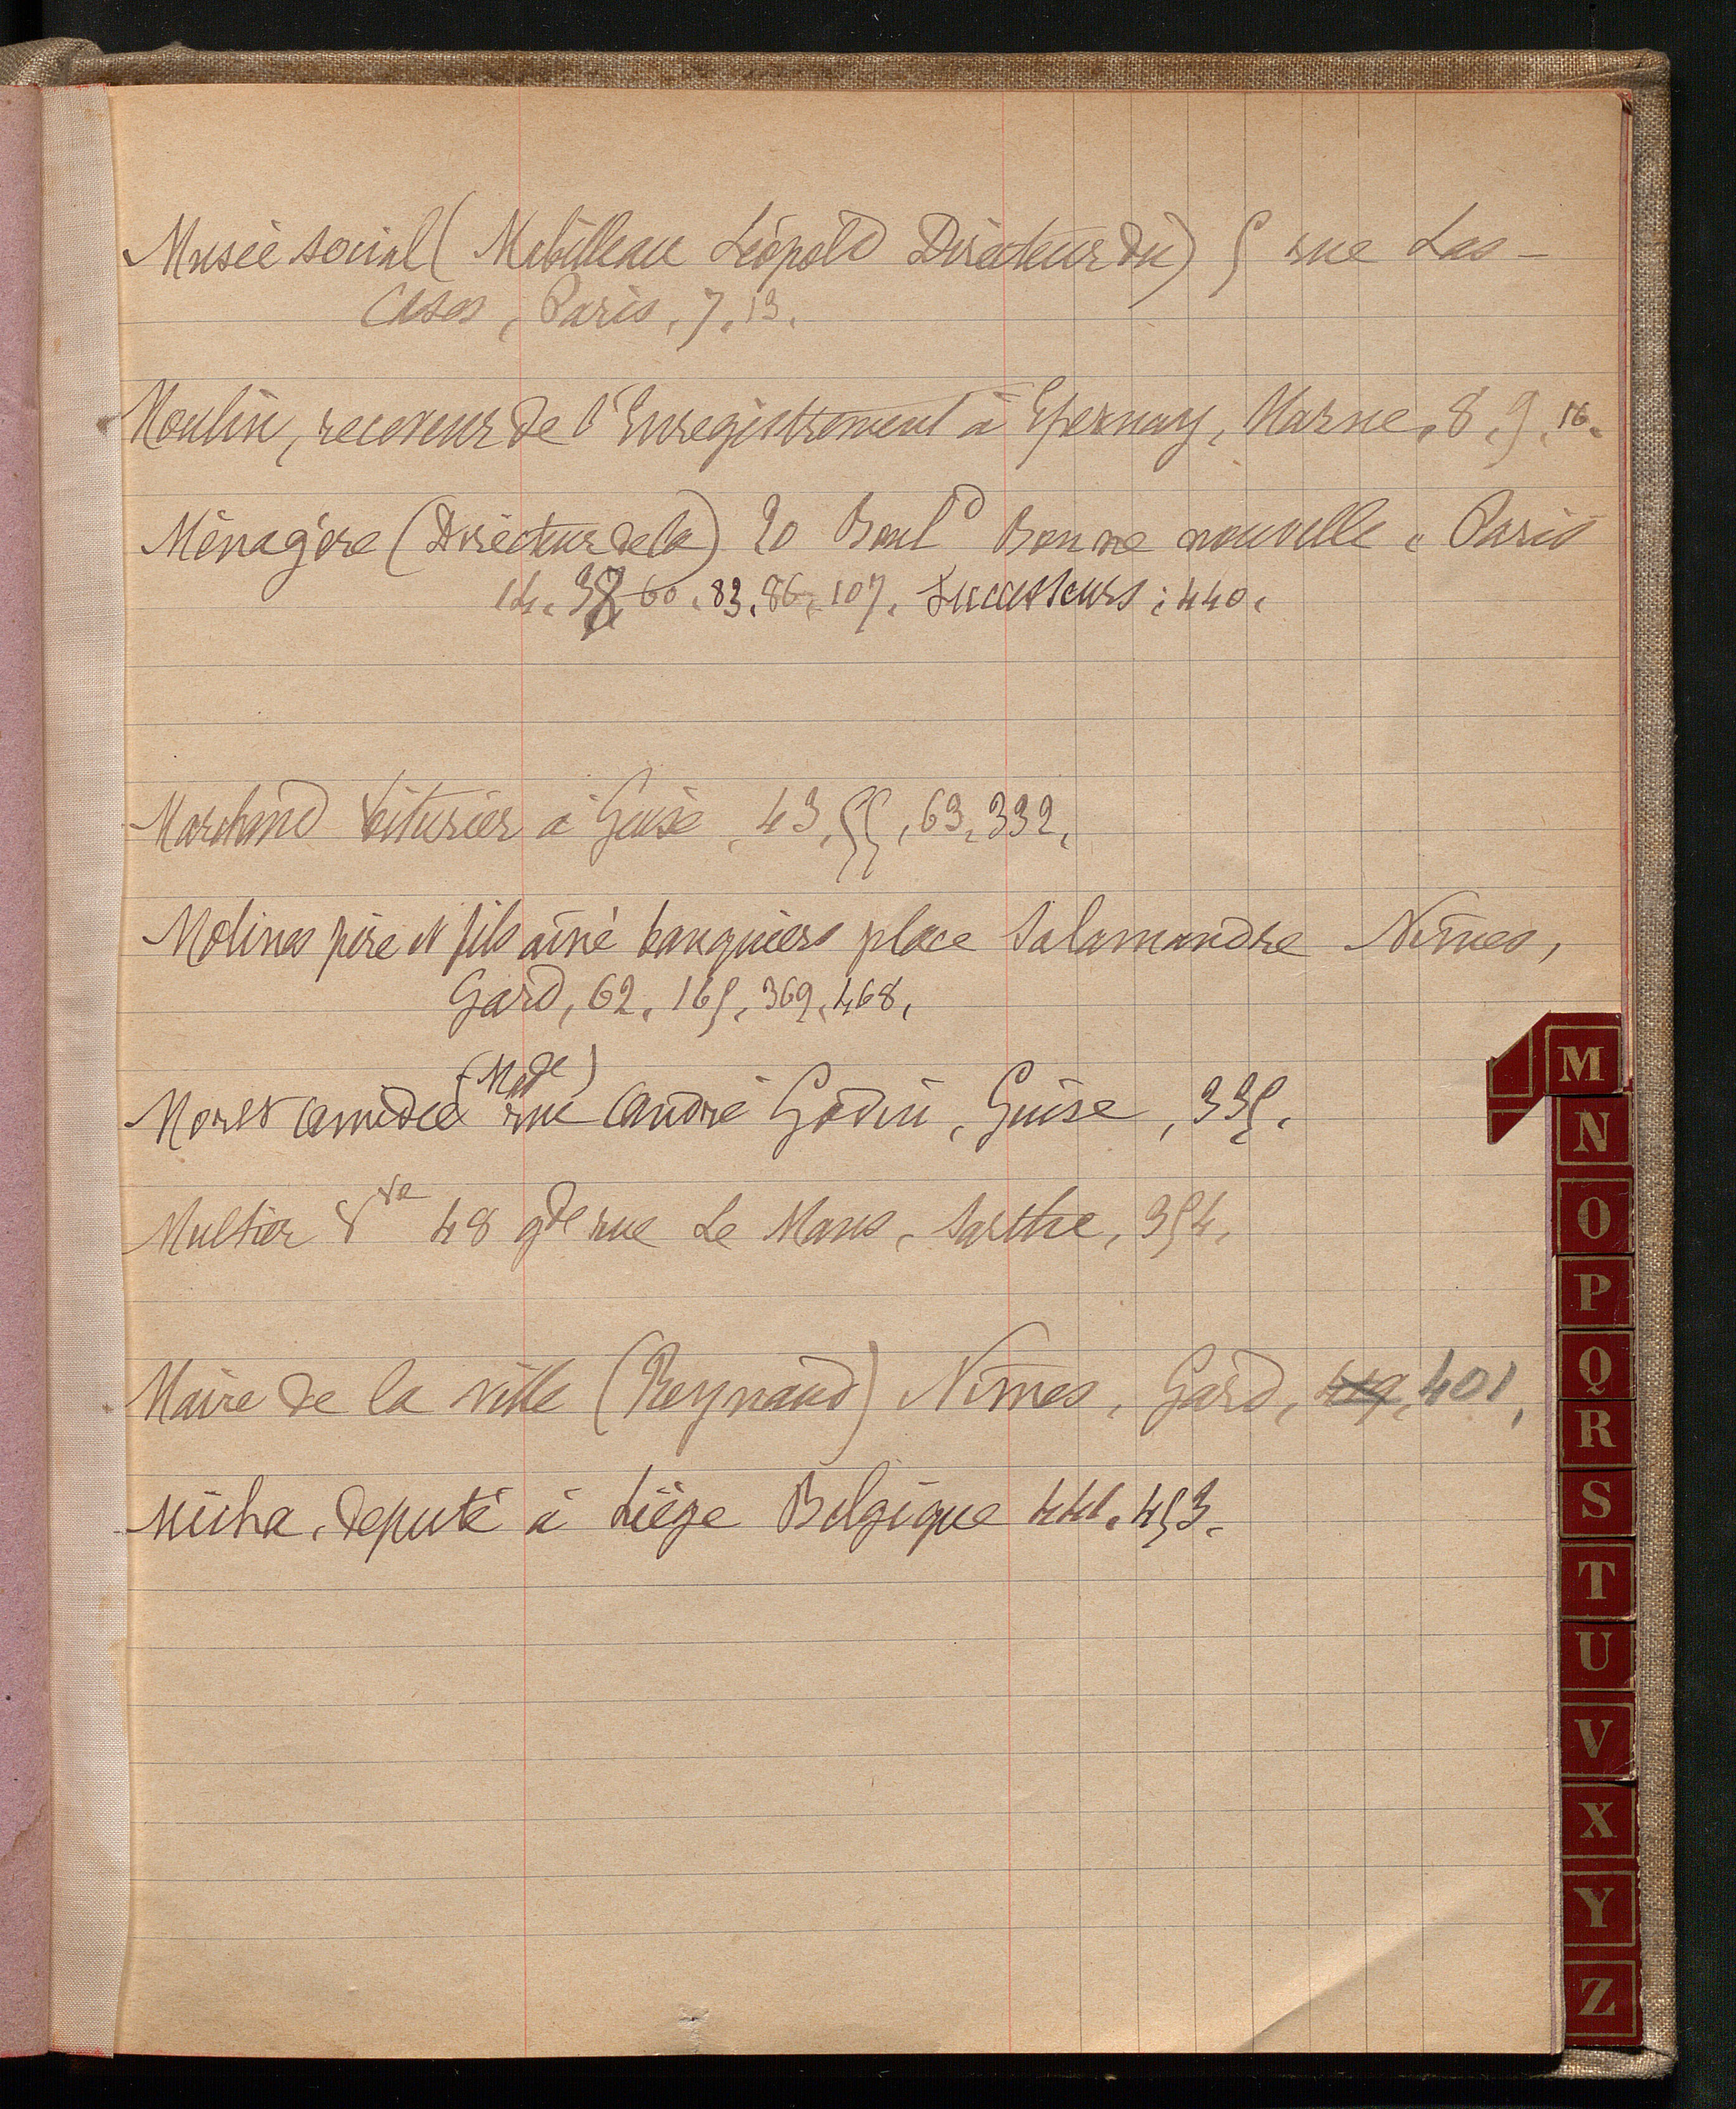 Musée social (Mabilleau Léopold Directeur du) 5 rue Las-
Cases, Paris, 7, 13.
Moulin, receveur de l'Enregistrement à Epernay, Marne, 8, 9, 16.
Ménagère (Directeur de la) 20 Boul^d Bonne nouvelle, Paris
14, 37, 60, 83, 86, 107, Successeurs : 440.
Marchand Voiturier à Guise, 43, 55, 63, 332,
Molines père et fils aîné banquiers place Salamandre Nîmes,
Gard, 62, 165, 369, 468,
(M^de)
Moret Amédée rue André Godin, Guise, 335,
Multier V^ve 48 g^de rue Le Mans, Sarthe, 354,
Maire de la ville (Reynaud) Nîmes, Gard, 401,
Micha, député à Liège Belgique 441, 453.
M
N
O
P
Q
R
S
T
U
V
X
Y
Z